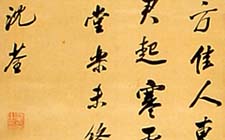 方佳人東
君起寒
堂樂未終
沈荃